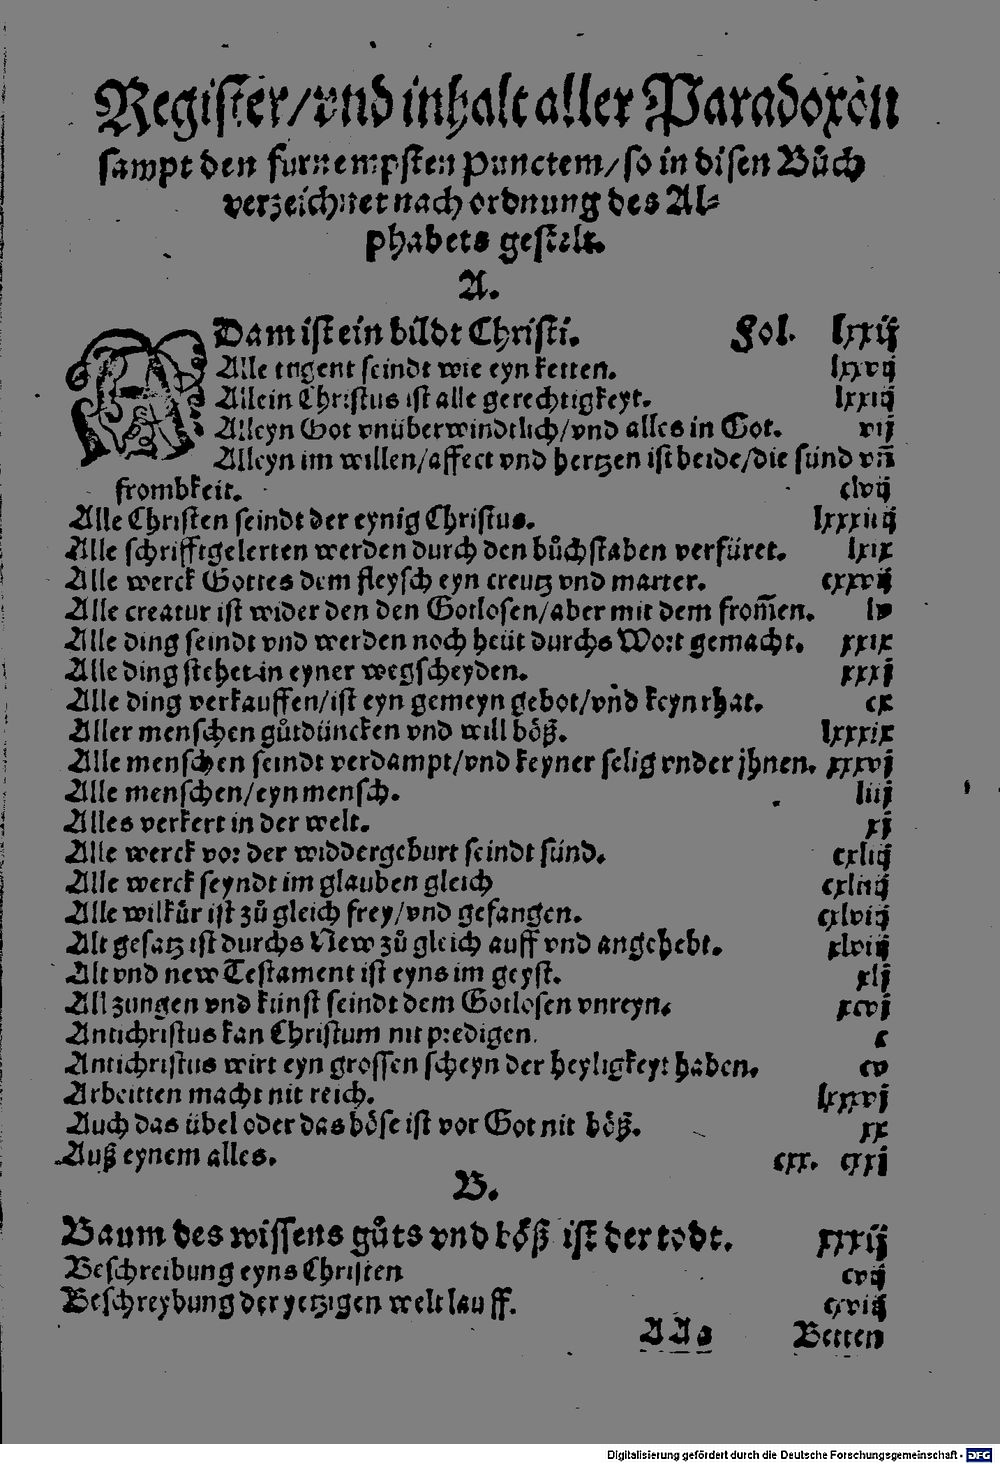 Register/vnd inhalt aller Paradoxon
sampt den furnempsten Punctem/so in disen Bůch
verzeichnet nach ordnung des Al-
phabets gestelt.
A.
ADam ist ein bildt Christi. Fol. lxxij
Alle tugent seindt wie eyn ketten. lxxvij
Allein Christus ist alle gerechtigkeyt. lxxiij
Alleyn Got vnüberwindtlich/vnd alles in Got. vij
Alleyn im willen/affect vnd hertzen ist beide/die sünd vñ
frombkeit. clvij
Alle Christen seindt der eynig Christus. lxxxiiij
Alle schrifftgelerten werden durch den bůchstaben verfüret. lxix
Alle werck Gottes dem fleysch eyn creutz vnd marter. cxxvij
Alle creatur ist wider den den Gotlosen/aber mit dem from̃en. lv
Alle ding seindt vnd werden noch heüt durchs Wort gemacht. xxix
Alle ding stehet in eyner wegscheyden. xxxj
Alle ding verkauffen/ist eyn gemeyn gebot/vnd keyn rhat. cx
Aller menschen gůtdüncken vnd will böß. lxxxix
Alle menschen seindt verdampt/vnd keyner selig vnder jhnen. xxxvj
Alle menschen/eyn mensch. liij
Alles verkert in der welt. xj
Alle werck vor der widdergeburt seindt sünd. cxliij
Alle werck seyndt im glauben gleich cxliiij
Alle wilkür ist zů gleich frey/vnd gefangen. cxlviij
Alt gesatz ist durchs New zů gleich auff vnd angehebt. xlviij
Alt vnd new Testament ist eyns im geyst. xlj
All zungen vnd künst seindt dem Gotlosen vnreyn. xcvj
Antichristus kan Christum nit predigen. c
Antichristus wirt eyn grossen scheyn der heyligkeyt haben. cv
Arbeitten macht nit reich. lxxvj
Auch das übel oder das böse ist vor Got nit böß. xx
Auß eynem alles. cxx. cxxj
B.
Baum des wissens gůts vnd böß ist der todt. xxxij
Beschreibung eyns Christen cvij
Beschreybung der yetzigen welt lauff. cxviij
AAa Betten
Digitalisierung gefördert durch die Deutsche Forschungsgemeinschaft - DFG